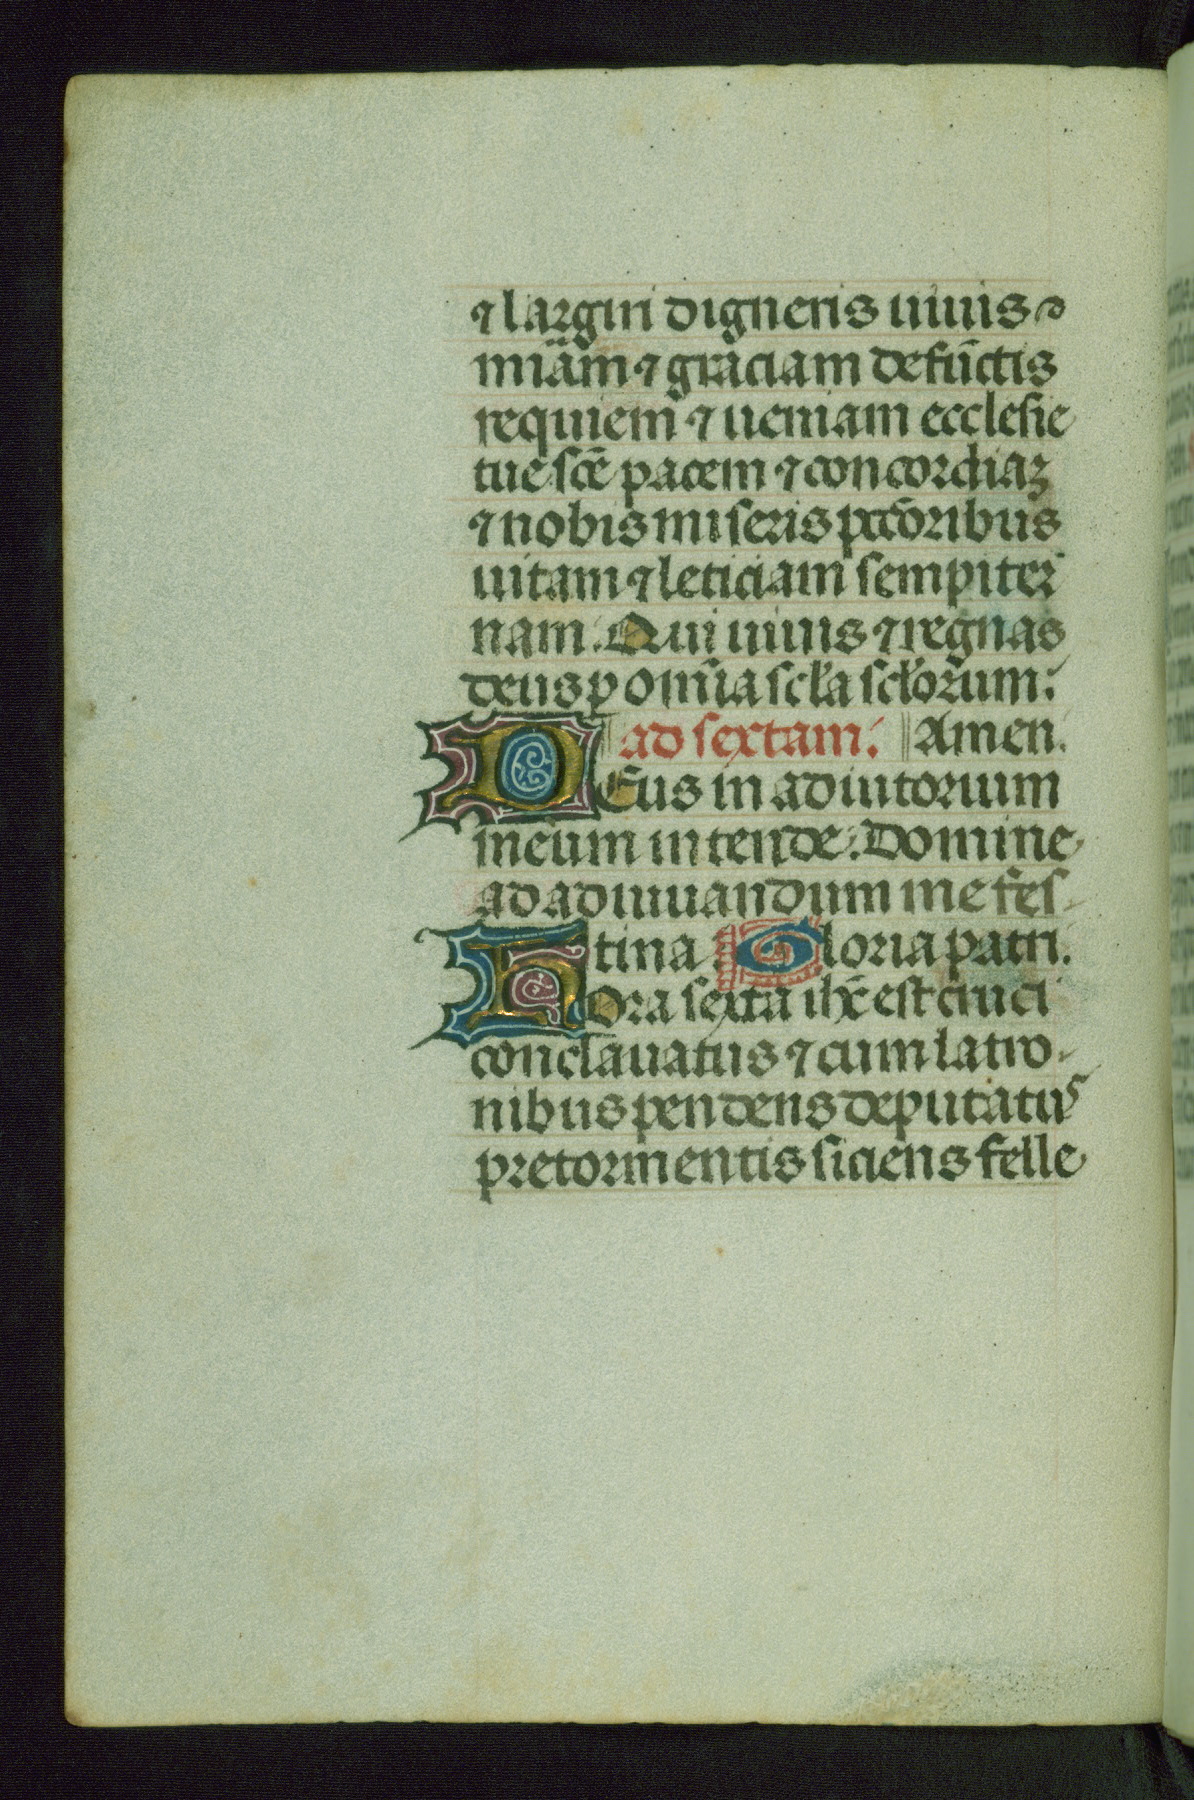 ⁊ largiri digneris uiuis
miãm ⁊ graciam defũctis
requiem ⁊ ueniam ecclesie
tue scẽ pacem ⁊ concordiaʒ
⁊ nobis miseris pctõribus
uitam ⁊ leticiam sempiter
nam. Qui uiuis ⁊ regnas
deus p omĩa scła scłorum:
ad sextam: Amen.
DEus in adiutorium
meum intende: Domine
ad adiuuandum me fes-
tina: Gloria patri.
Hora sexta ihc̃ est cruci
conclauatus ⁊ cum latro-
nibus pendens deputatus
pre tormentis siciens felle